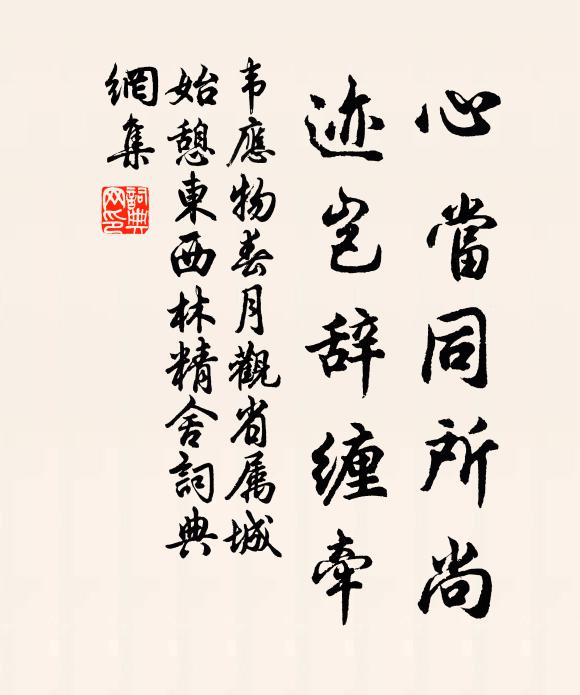 心當同所尚
迹岂辞缠牽
韦應物春月觀省属城
始憩東西林精舍詞典
網集
詞典网印